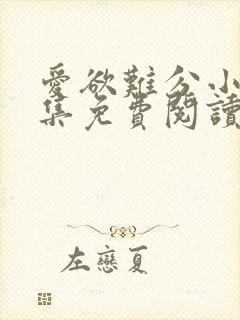 愛欲難分小
集免費閱讀
左戀夏